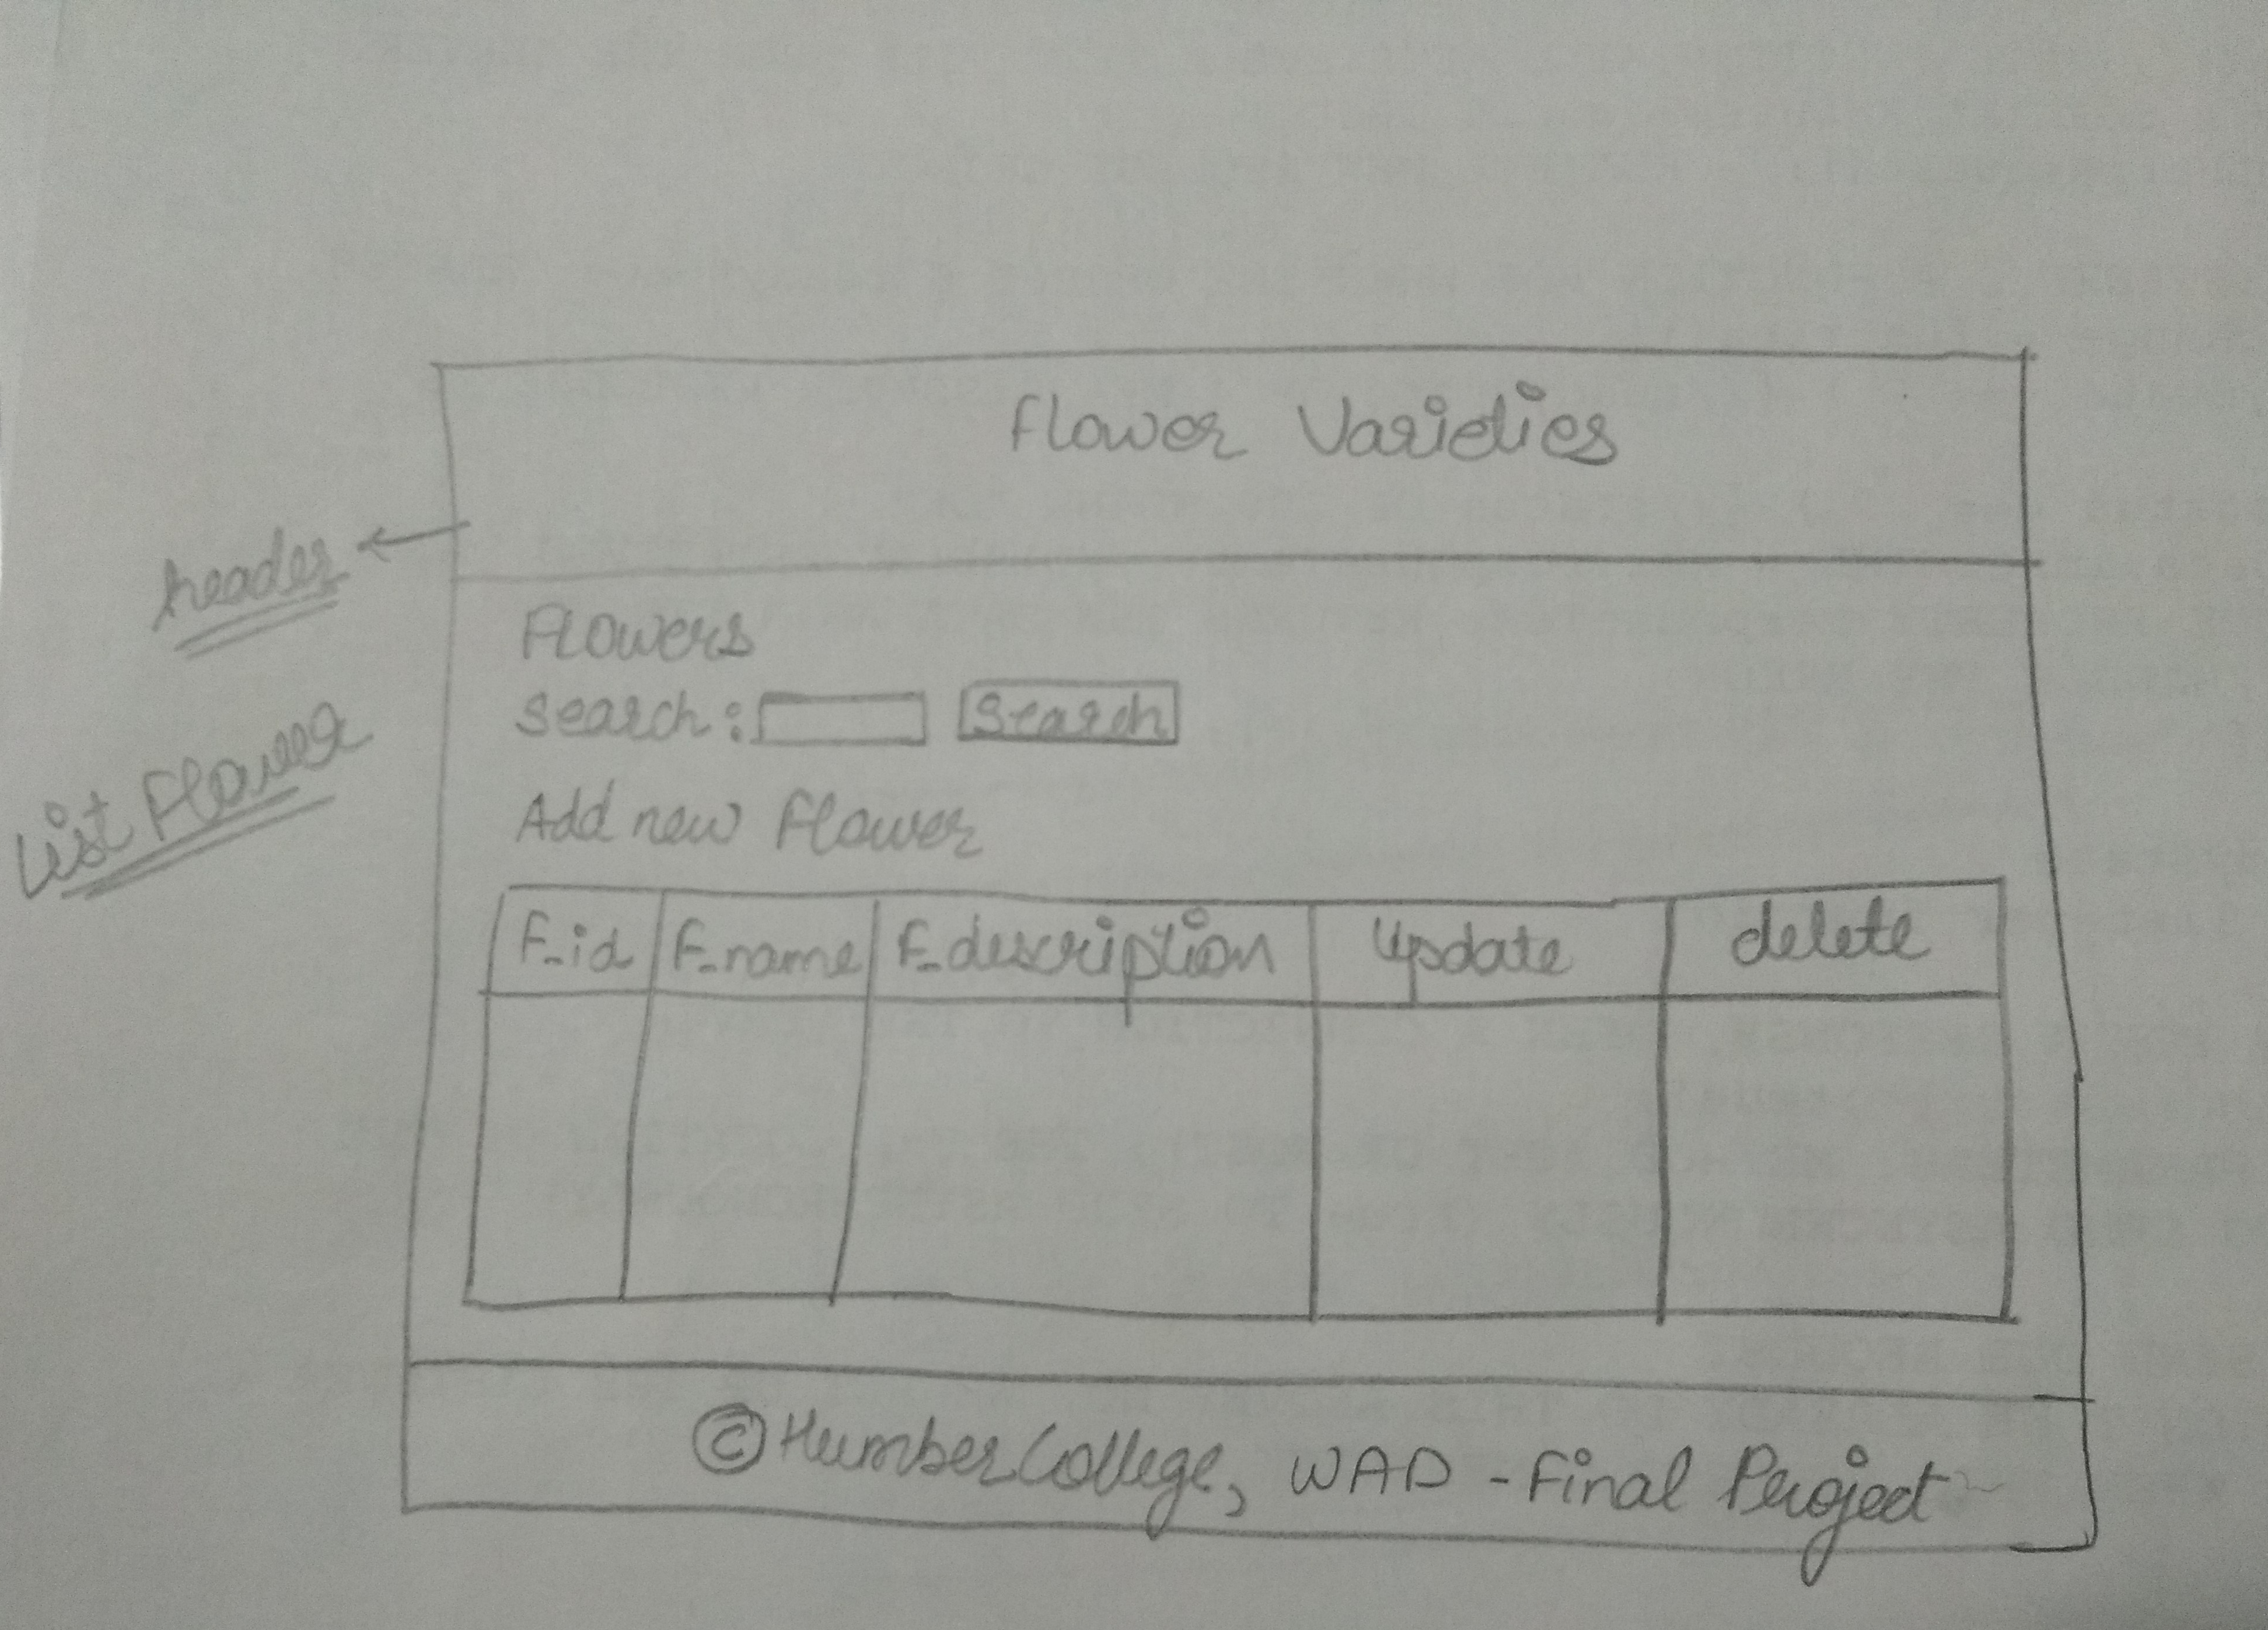 Flower Varieties
header
Flowers
Search: Search
List Flower
Add new Flower
F_id F_name F_description Update delete
© Humber College, WAD - Final Project